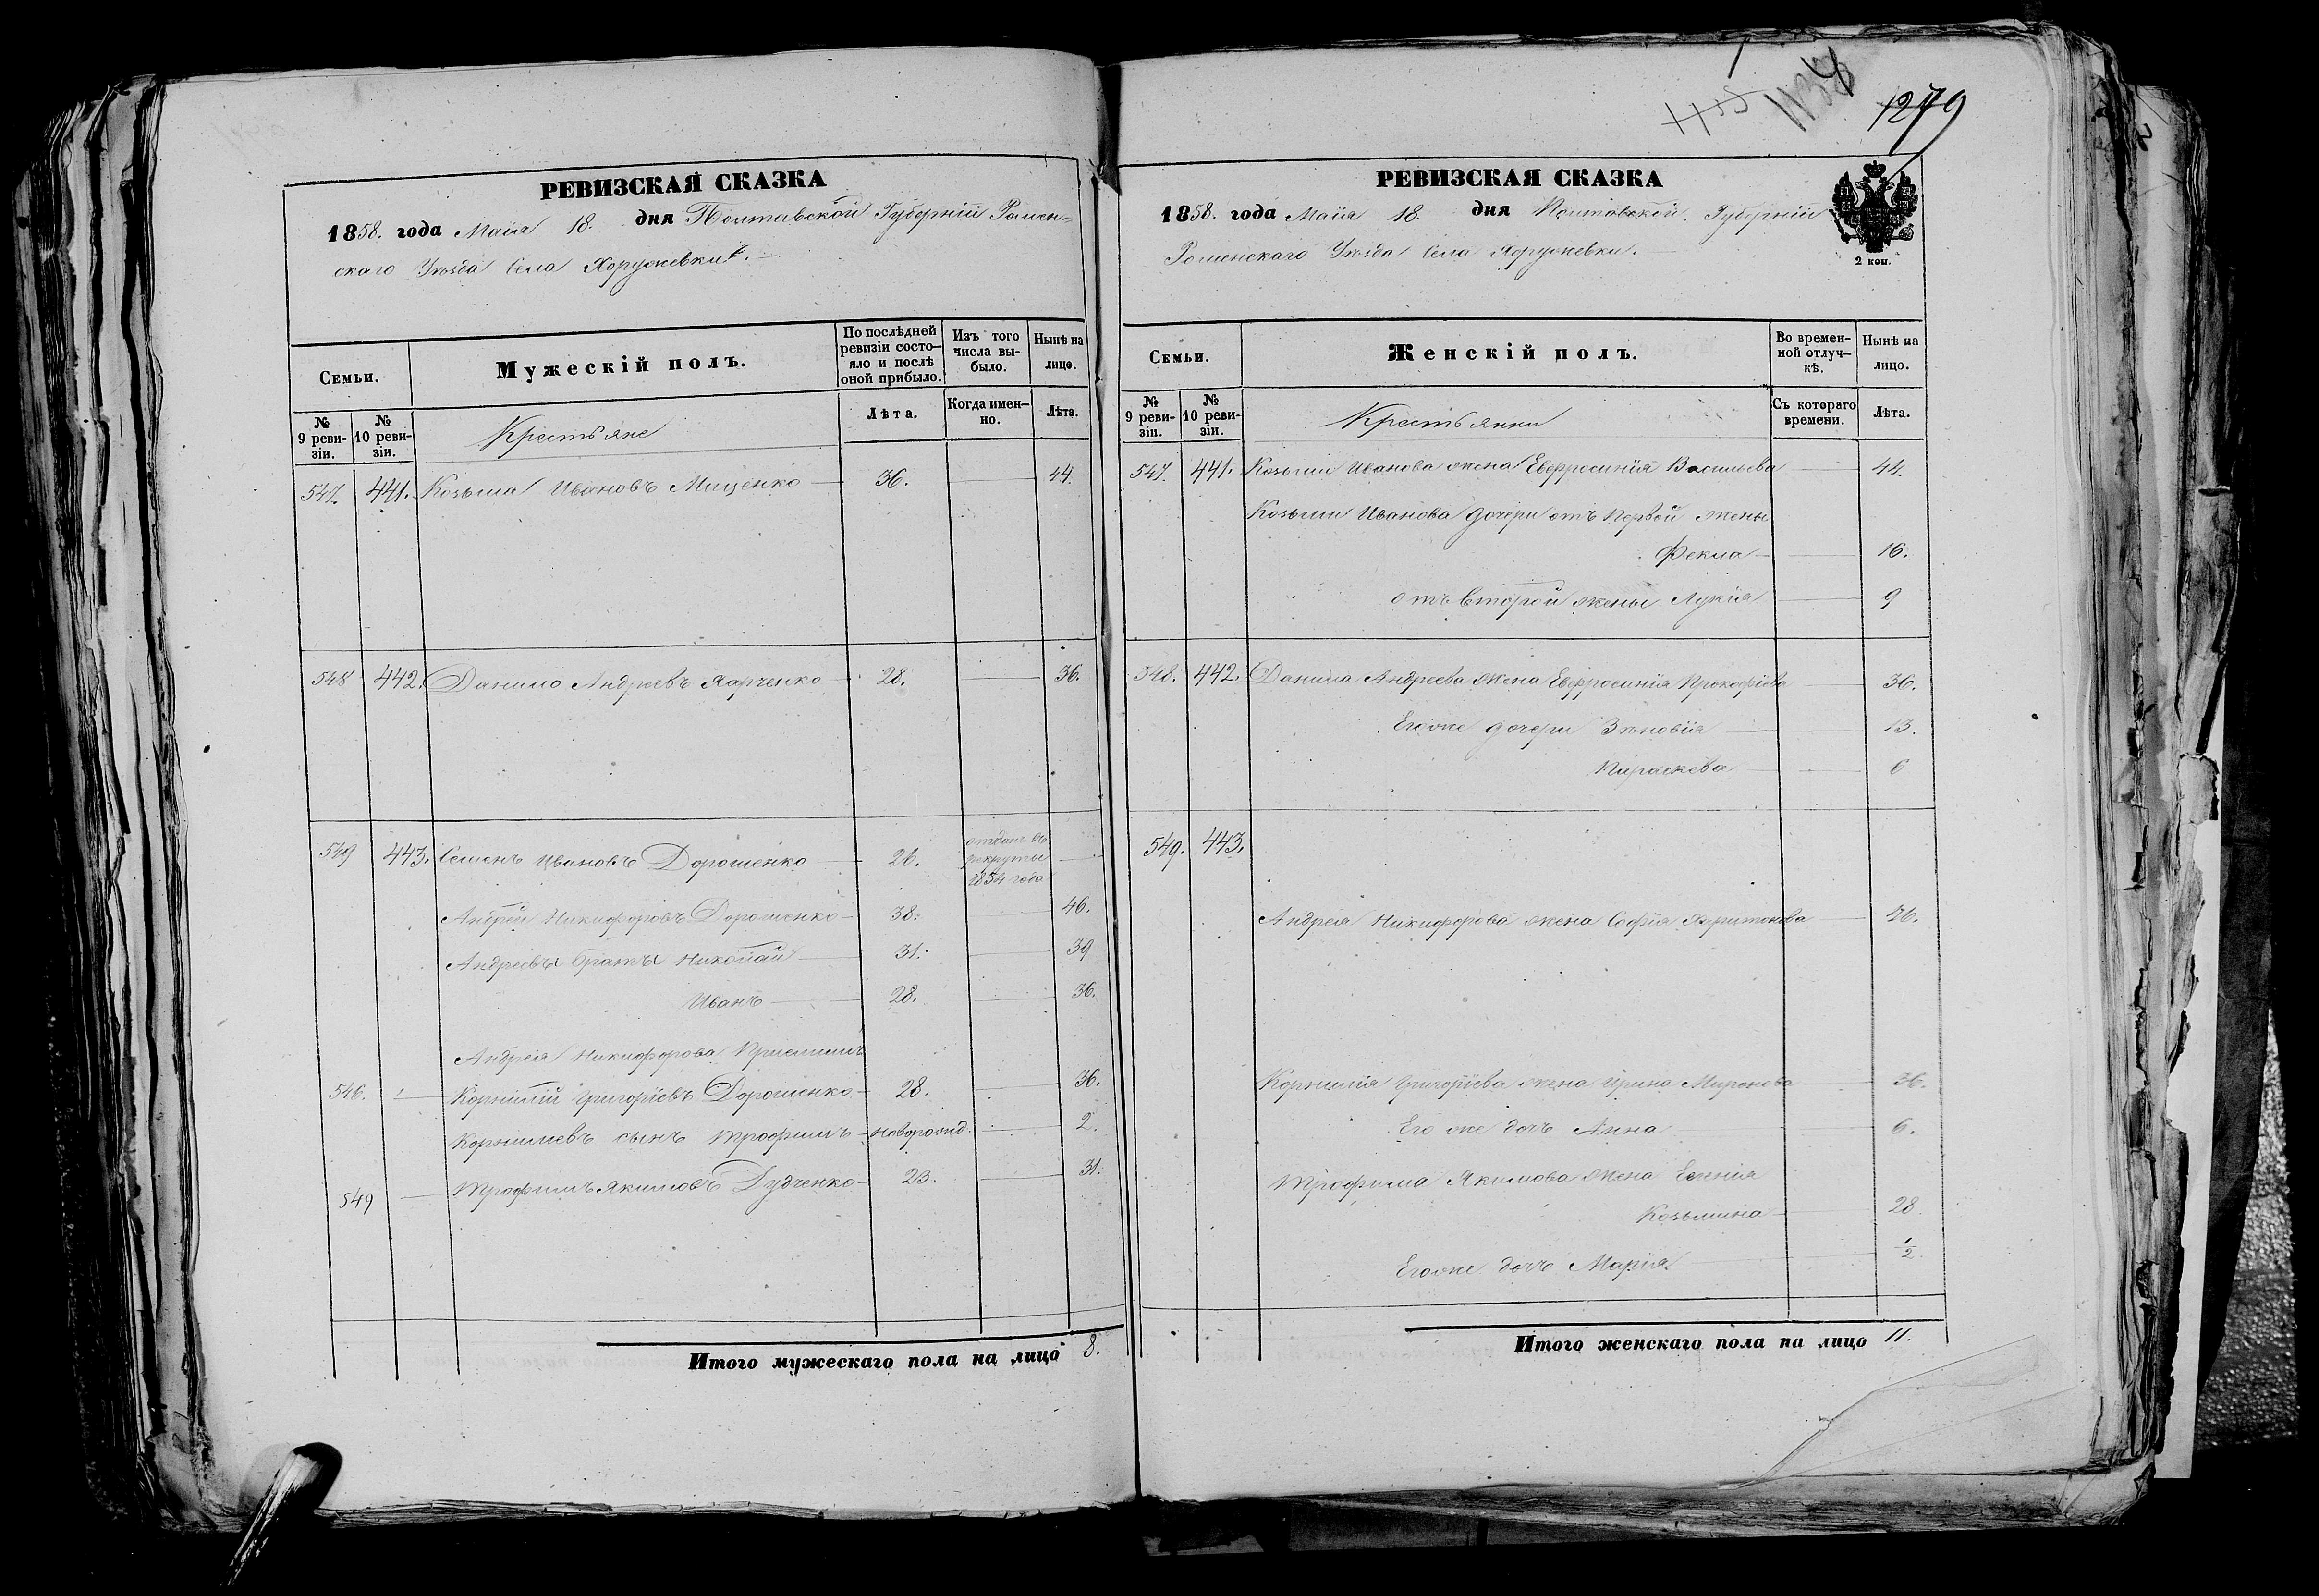 1279
РЕВИЗСКАЯ СКАЗКА
1858. года Маія 18. дня Полтавской Губерніи Ромен-
скаго Уѣзда Села Хоружевки.
Семьи.
Мужескій полъ.
По послѣдней ревизіи состо-яло и послѣ оной прибыло.
Изъ того числа вы-было.
Нынѣ на лицо.
№ 9 реви-зіи.
№ 10 реви-зіи.
Крестьяне
Лѣта.
Когда имен-но.
Лѣта.
547. 441. Козьма Ивановъ Мищенко 36. 44.
548 442. Данило Андреевъ Харченко 28. 36.
549 443. Семенъ Ивановъ Дорошенко 26. отданъ въ рекруты 1854 года
Андрей Никифоровъ Дорошенко 38. 46.
Андреевы братья Николай 31. 39
Иванъ 28. 36.
Андрея Никифорова Приемышъ
546. Корнилій Григоріевъ Дорошенко 28. 36.
Корнилиевъ сынъ Трофимъ новорожд. 2.
549 Трофимъ Якимовъ Дудченко 23. 31.
Итого мужескаго пола на лицо 8.
РЕВИЗСКАЯ СКАЗКА
1858. года Маія 18. дня Полтавской Губерніи
Роменскаго Уѣзда Села Хоружевки.
2 коп.
Семьи.
Женскій полъ.
Во времен-ной отлуч-кѣ.
Нынѣ на лицо.
№ 9 реви-зіи.
№ 10 реви-зіи.
Крестьянки
Съ котораго времени.
Лѣта.
547. 441. Козьми Иванова жена Евфросинія Васильева 44.
Козьми Иванова дочери отъ Первой жены
Фекла 16.
отъ Второй жены Лукія 9
548. 442. Данила Андреева жена Евфросинія Прокофіева 36.
Егоже дочери Зѣновія 13.
Параскева 6
549. 443.
Андрея Никифорова жена Софія Харитонова 46.
Корнилія Григоріева жена Ирина Миронова 36.
Его же дочь Анна 6.
Трофима Якимова жена Евгенія
Козьмина 28.
Егоже дочь Марія 1/2.
Итого женскаго пола на лицо 11.